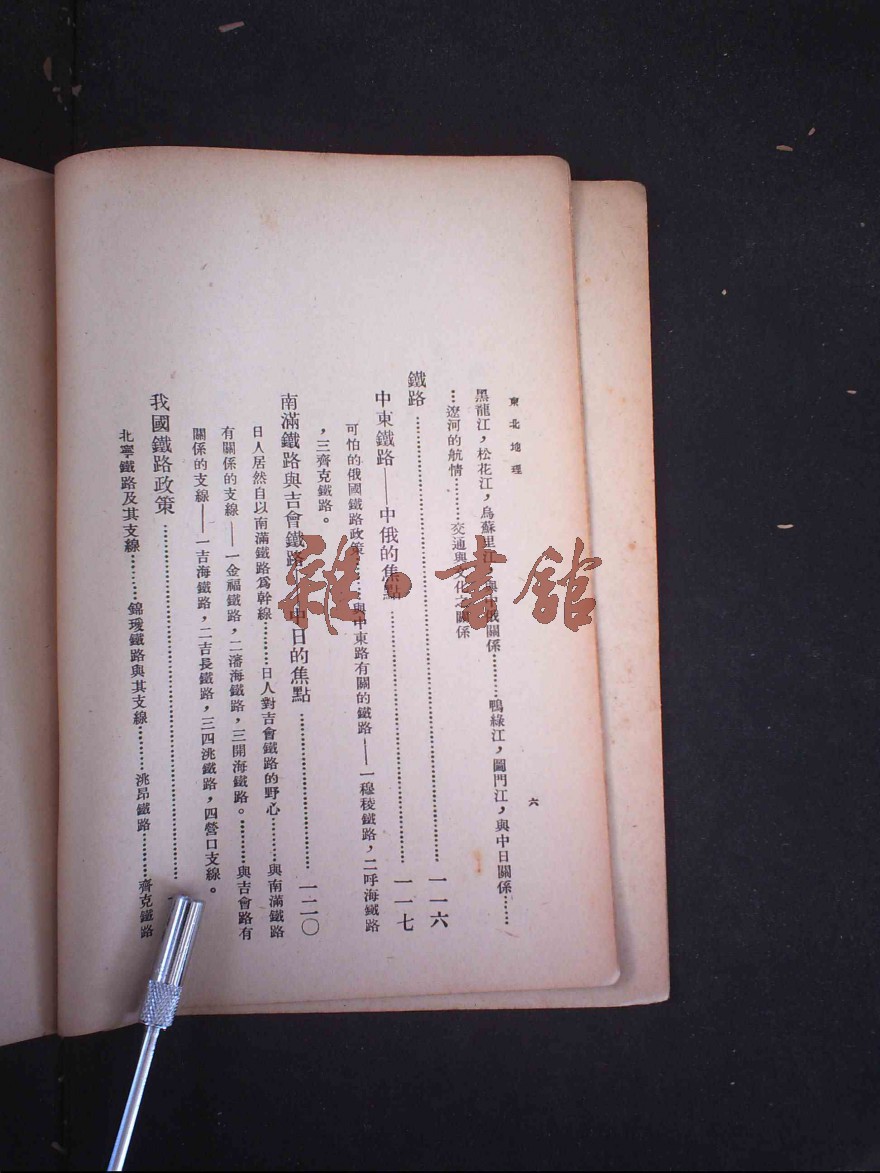 東北地理
六
黑龍江，松花江，烏蘇里江，與中俄關係………鴨綠江，圖門江，與中日關係……
…遼河的航情………交通與文化之關係
鐵路……一一六
中東鐵路——中俄的焦點……一一七
可怕的俄國鐵路政策………與中東路有關的鐵路——一穆稜鐵路，二呼海鐵路
，三齊克鐵路。
南滿鐵路與吉會鐵路——中日的焦點……一二〇
日人居然自以南滿鐵路爲幹線………日人對吉會鐵路的野心………與南滿鐵路
有關係的支線——一金福鐵路，二瀋海鐵路，三開海鐵路。………與吉會路有
關係的支線——一吉海鐵路，二吉長鐵路，三四洮鐵路，四營口支線。
我國鐵路政策……
北寧鐵路及其支線………錦璦鐵路與其支線………洮昂鐵路………齊克鐵路
雜·書館